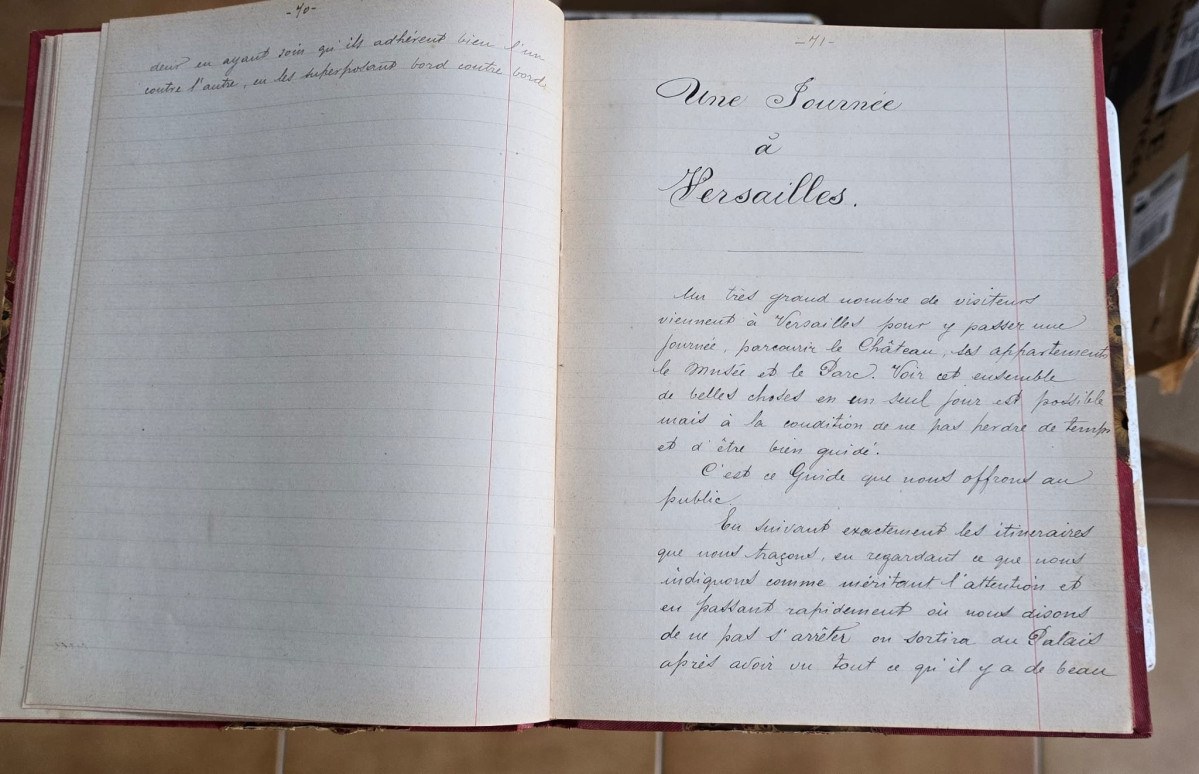 -70-
deux en ayant soin qu'ils adhérent bien l'un
contre l'autre, en les superposant bord contre bord.
-71-
Une Journée
à
Versailles.
Un très grand nombre de visiteurs
viennent à Versailles pour y passer une
journée, parcourir le Château, ses appartements
le Musée et le Parc. Voir cet ensemble
de belles choses en un seul jour est possible
mais à la condition de ne pas perdre de temps
et d'être bien guidé.
C'est ce Guide que nous offrons au
public.
En suivant exactement les itineraires
que nous traçons, en regardant ce que nous
indiquons comme méritant l'attention et
en passant rapidement où nous disons
de ne pas s'arrêter on sortira du Palais
après avoir vu tout ce qu'il y a de beau